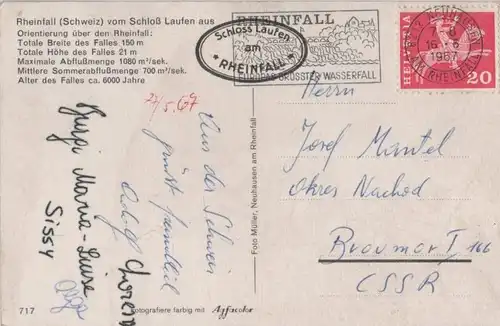 Rheinfall (Schweiz) vom Schloß Laufen aus
Orientierung über den Rheinfall:
Totale Breite des Falles 150 m
Totale Höhe des Falles 21 m
Maximale Abflußmenge 1080 m³/sek.
Mittlere Sommerabflußmenge 700 m³/sek.
Alter des Falles ca. 6000 Jahre
Schloss Laufen
am
* RHEINFALL *
RHEINFALL
GRÖSSTER WASSERFALL
16-6
1967
AM RHEINFALL
HELVETIA
20
27/5.67
Aus der Schweiz
grüsst Familie
Adolf Lorenz
Burgi Maria-Luise
Sissy
Herrn
Josef Mantel
Okres Nachod
Broumov I 166
ČSSR
Foto Müller, Neuhausen am Rheinfall
717
Fotografiere farbig mit Agfacolor